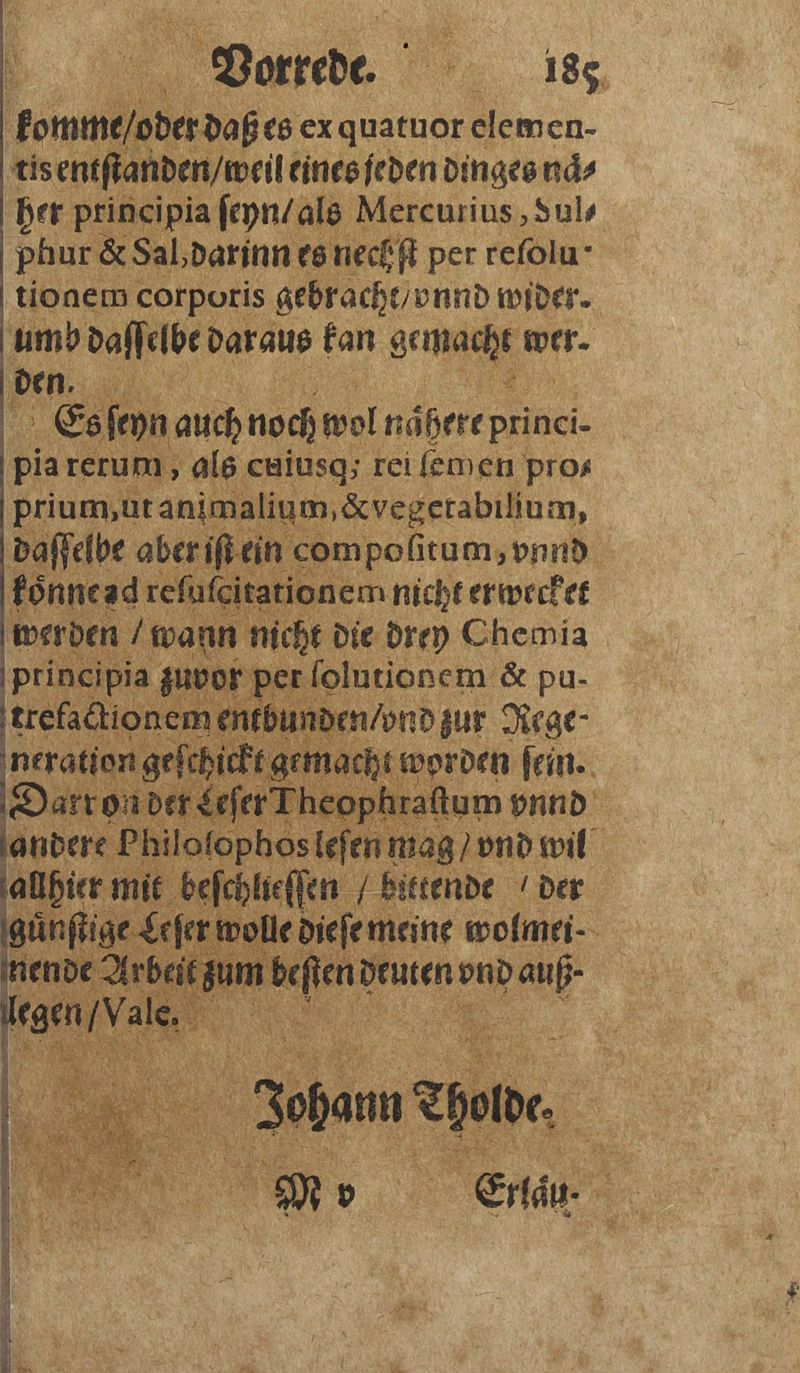 Vorrede. 185
komme/oder daß es ex quatuor elemen-
tis entstanden/weil eines jeden dinges nä-
her principia seyn/als Mercurius, Sul-
phur & Sal, darinn es nechst per resolu-
tionem corporis gebracht/vnnd wider-
umb dasselbe daraus kan gemacht wer-
den.
Es seyn auch noch wol nähere princi-
pia rerum, als cuiusq; rei semen pro-
prium, ut animalium, & vegetabilium,
dasselbe aber ist ein compositum, vnnd
könne ad resuscitationem nicht erwecket
werden / wann nicht die drey Chemia
principia zuvor per solutionem & pu-
trefactionem entbunden/vnd zur Rege-
neration geschickt gemacht worden sein.
Darvon der Leser Theophrastum vnnd
andere Philosophos lesen mag / vnd wil
allhier mit beschliessen / bittende / der
günstige Leser wolle diese meine wolmei-
nende Arbeit zum besten deuten vnd auß-
legen/Vale.
Johann Tholde.
M v Erläu-